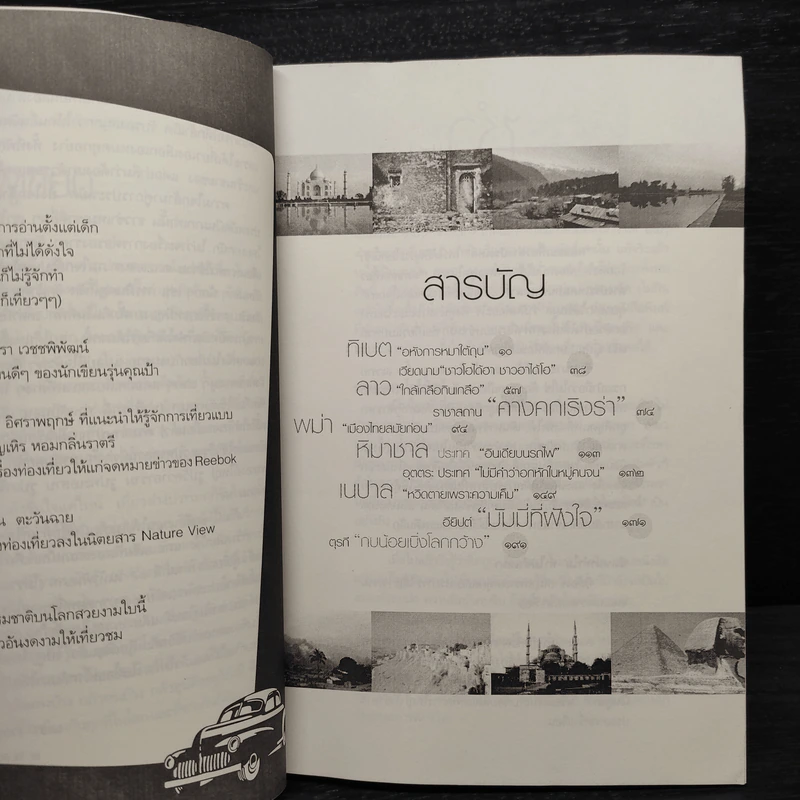 การอ่านตั้งแต่เด็ก
าที่ไม่ได้ตั้งใจ
ก็ไม่รู้จักทำ
ก็เที่ยวๆๆ)
รา เวชชพิพัฒน์
านดีๆ ของนักเขียนรุ่นคุณป้า
อิศราพฤกษ์ ที่แนะนำให้รู้จักการเที่ยวแบบ
ญเหิร หอมกลิ่นราตรี
รื่องท่องเที่ยวให้แก่จดหมายข่าวของ Reebok
น ตะวันฉาย
งท่องเที่ยวลงในนิตยสาร Nature View
รมชาติบนโลกสวยงามใบนี้
วอันงดงามให้เที่ยวชม
สารบัญ
ทิเบต “อหังการหมาใต้ถุน” ๑๐
เวียดนาม “ชาวโอได้อา ชาวอาได้โอ” ๓๘
ลาว “ใกล้เกลือกินเกลือ” ๕๗
ราชาสถาน “คางคกเริงร่า” ๗๔
พม่า “เมืองไทยสมัยก่อน” ๙๔
หิมาชาล ประเทศ “อินเดียบนรถไฟ” ๑๑๓
อุตตระ ประเทศ “ไม่มีคำว่าอกหักในหมู่คนจน” ๑๓๒
เนปาล “หวิดตายเพราะความเค็ม” ๑๔๙
อียิปต์ “มัมมี่ที่ฝังใจ” ๑๗๑
ตุรกี “กบน้อยเบิ่งโลกกว้าง” ๑๙๑